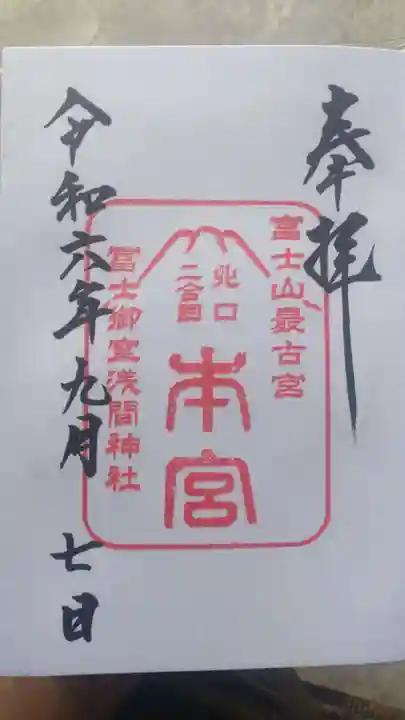 奉拝
冨士山最古宮
北口
二合目
本宮
冨士御室浅間神社
令和六年九月七日